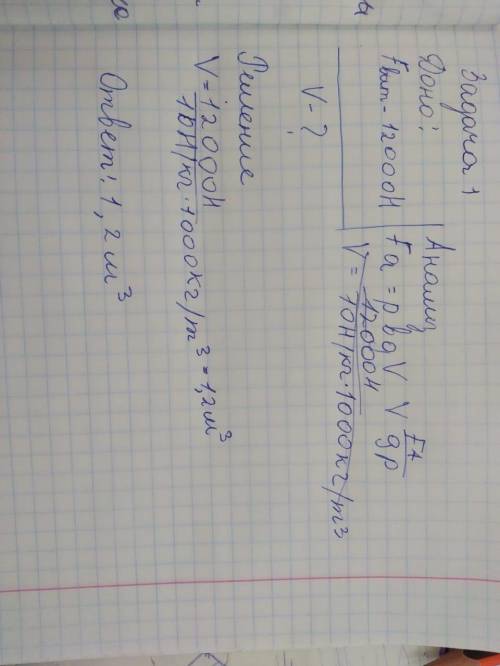 Задача 1
Дано:
Fвит - 12000Н
V - ?
Аналіз
Fа = рвg V V F4/gр
V = 12000Н/10Н/кг·1000кг/m3
Решение
V = 12000Н/10Н/кг·1000кг/m3 = 1,2м3
Ответ: 1,2 м3